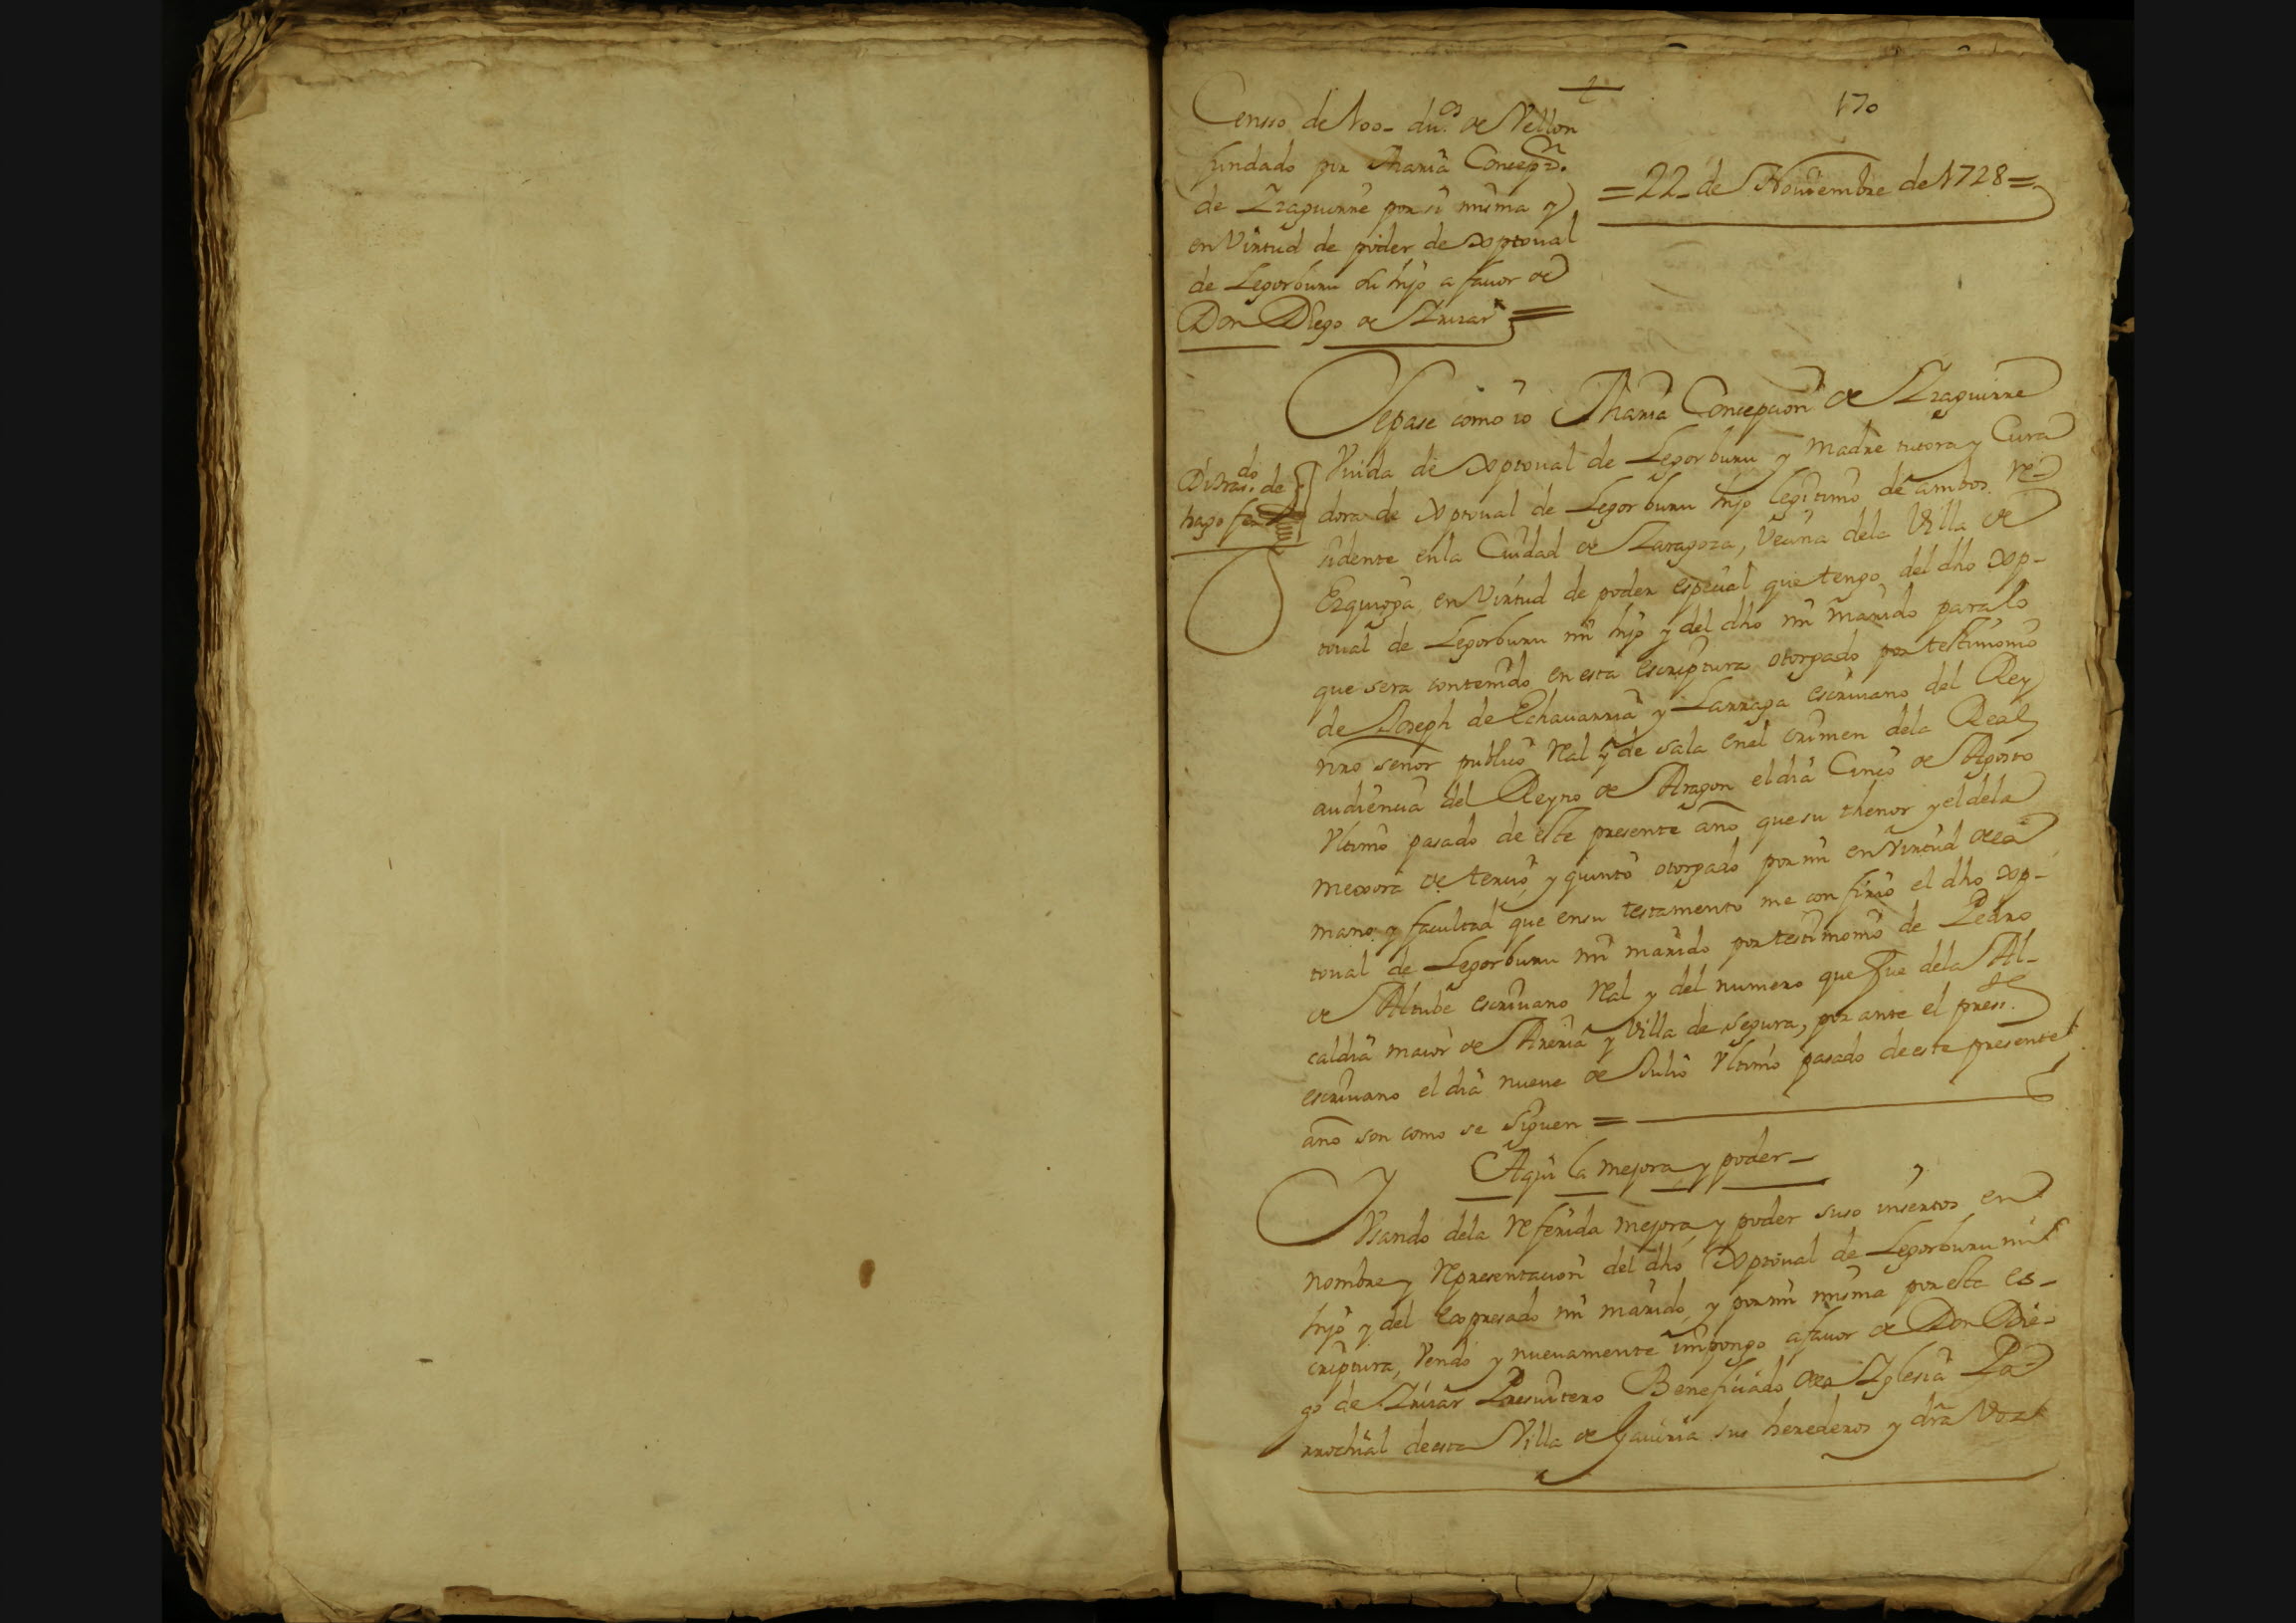 170
Censso de 100- du.os de Vellon
fundado por Maria Concepn.
de Yzaguirre por si misma y
en Virtud de poder de Xptoual
de Legorburu su hijo a fauor de
Don Diego de Yrizar =
= 22 de Nouiembre de 1728 =
Sepase como io Maria Concepcion de Yzaguirre
Viuda de Xptoual de Legorburu y Madre tutora y Cura
dora de Xptoual de Legorburu hijo legitimo de ambos re-
sidente en la Ciudad de Zaragoza, Vecina dela Villa de
Ezquioga, en Virtud de poder especial que tengo del dho Xp-
toual de Legorburu mi hijo y del dho mi marido para lo
que sera contenido en esta escriptura otorgado por testimonio
de Joseph de Echauarria y Larraga escriuano del Rey
nro señor publico Real y de sala en el crimen dela Real
audiencia del Reyno de Aragon el dia Cinco de Agosto
Vltimo pasado de este presente año que su thenor y el dela
mexora de tercio y quinto otorgado por mi en Virtud dela
mano y facultad que en su testamento me confirio el dho Xp-
toual de Legorburu mi marido por testimonio de Pedro
de Altube escriuano Real y del numero que fue dela Al-
caldia maior de Areria y Villa de Segura, por ante el press.te
escriuano el dia nueue de Julio Vltimo pasado de este presente
año son como se siguen =
Disras.do de
hago fee
Aqui la mejora y poder-
Vsando dela referida mejora y poder suso insertos en
nombre y representacion del dho Xptoual de Legorburu mi
hijo y del expresado mi marido, y por mi misma por esta es-
criptura, Vendo y nueuamente impongo a fauor de Don Die-
go de Yrizar Presuitero Beneficiado dela Yglesia Pa
rrochial de esta Villa de Gauiria sus herederos y dra Voz